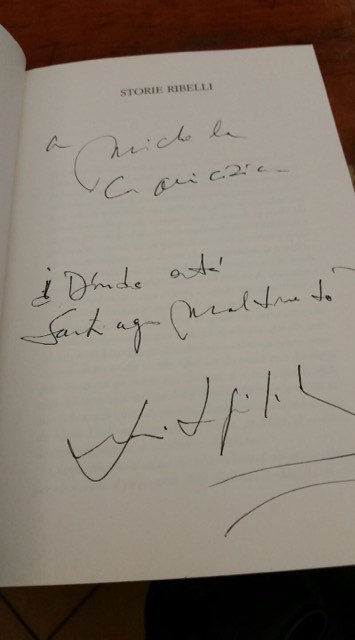 STORIE RIBELLI
a Michele
Con amicizia
¿Dónde está
Santiago Maldonado